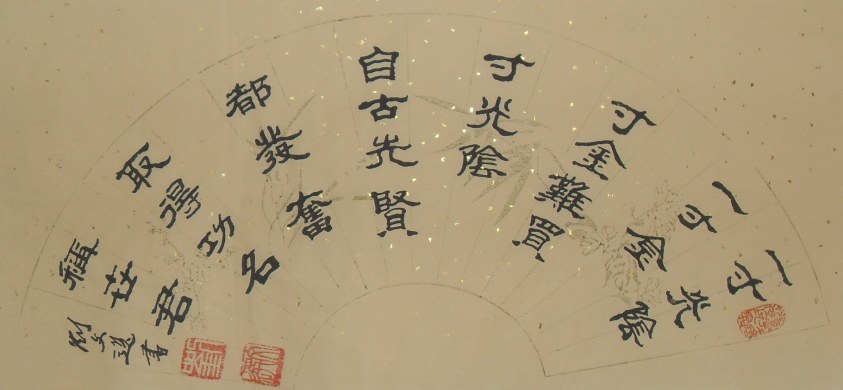 一寸光陰
一寸金
寸金難買
寸光陰
自古先賢
都發奮
取得功名
稱世君
劉文選書